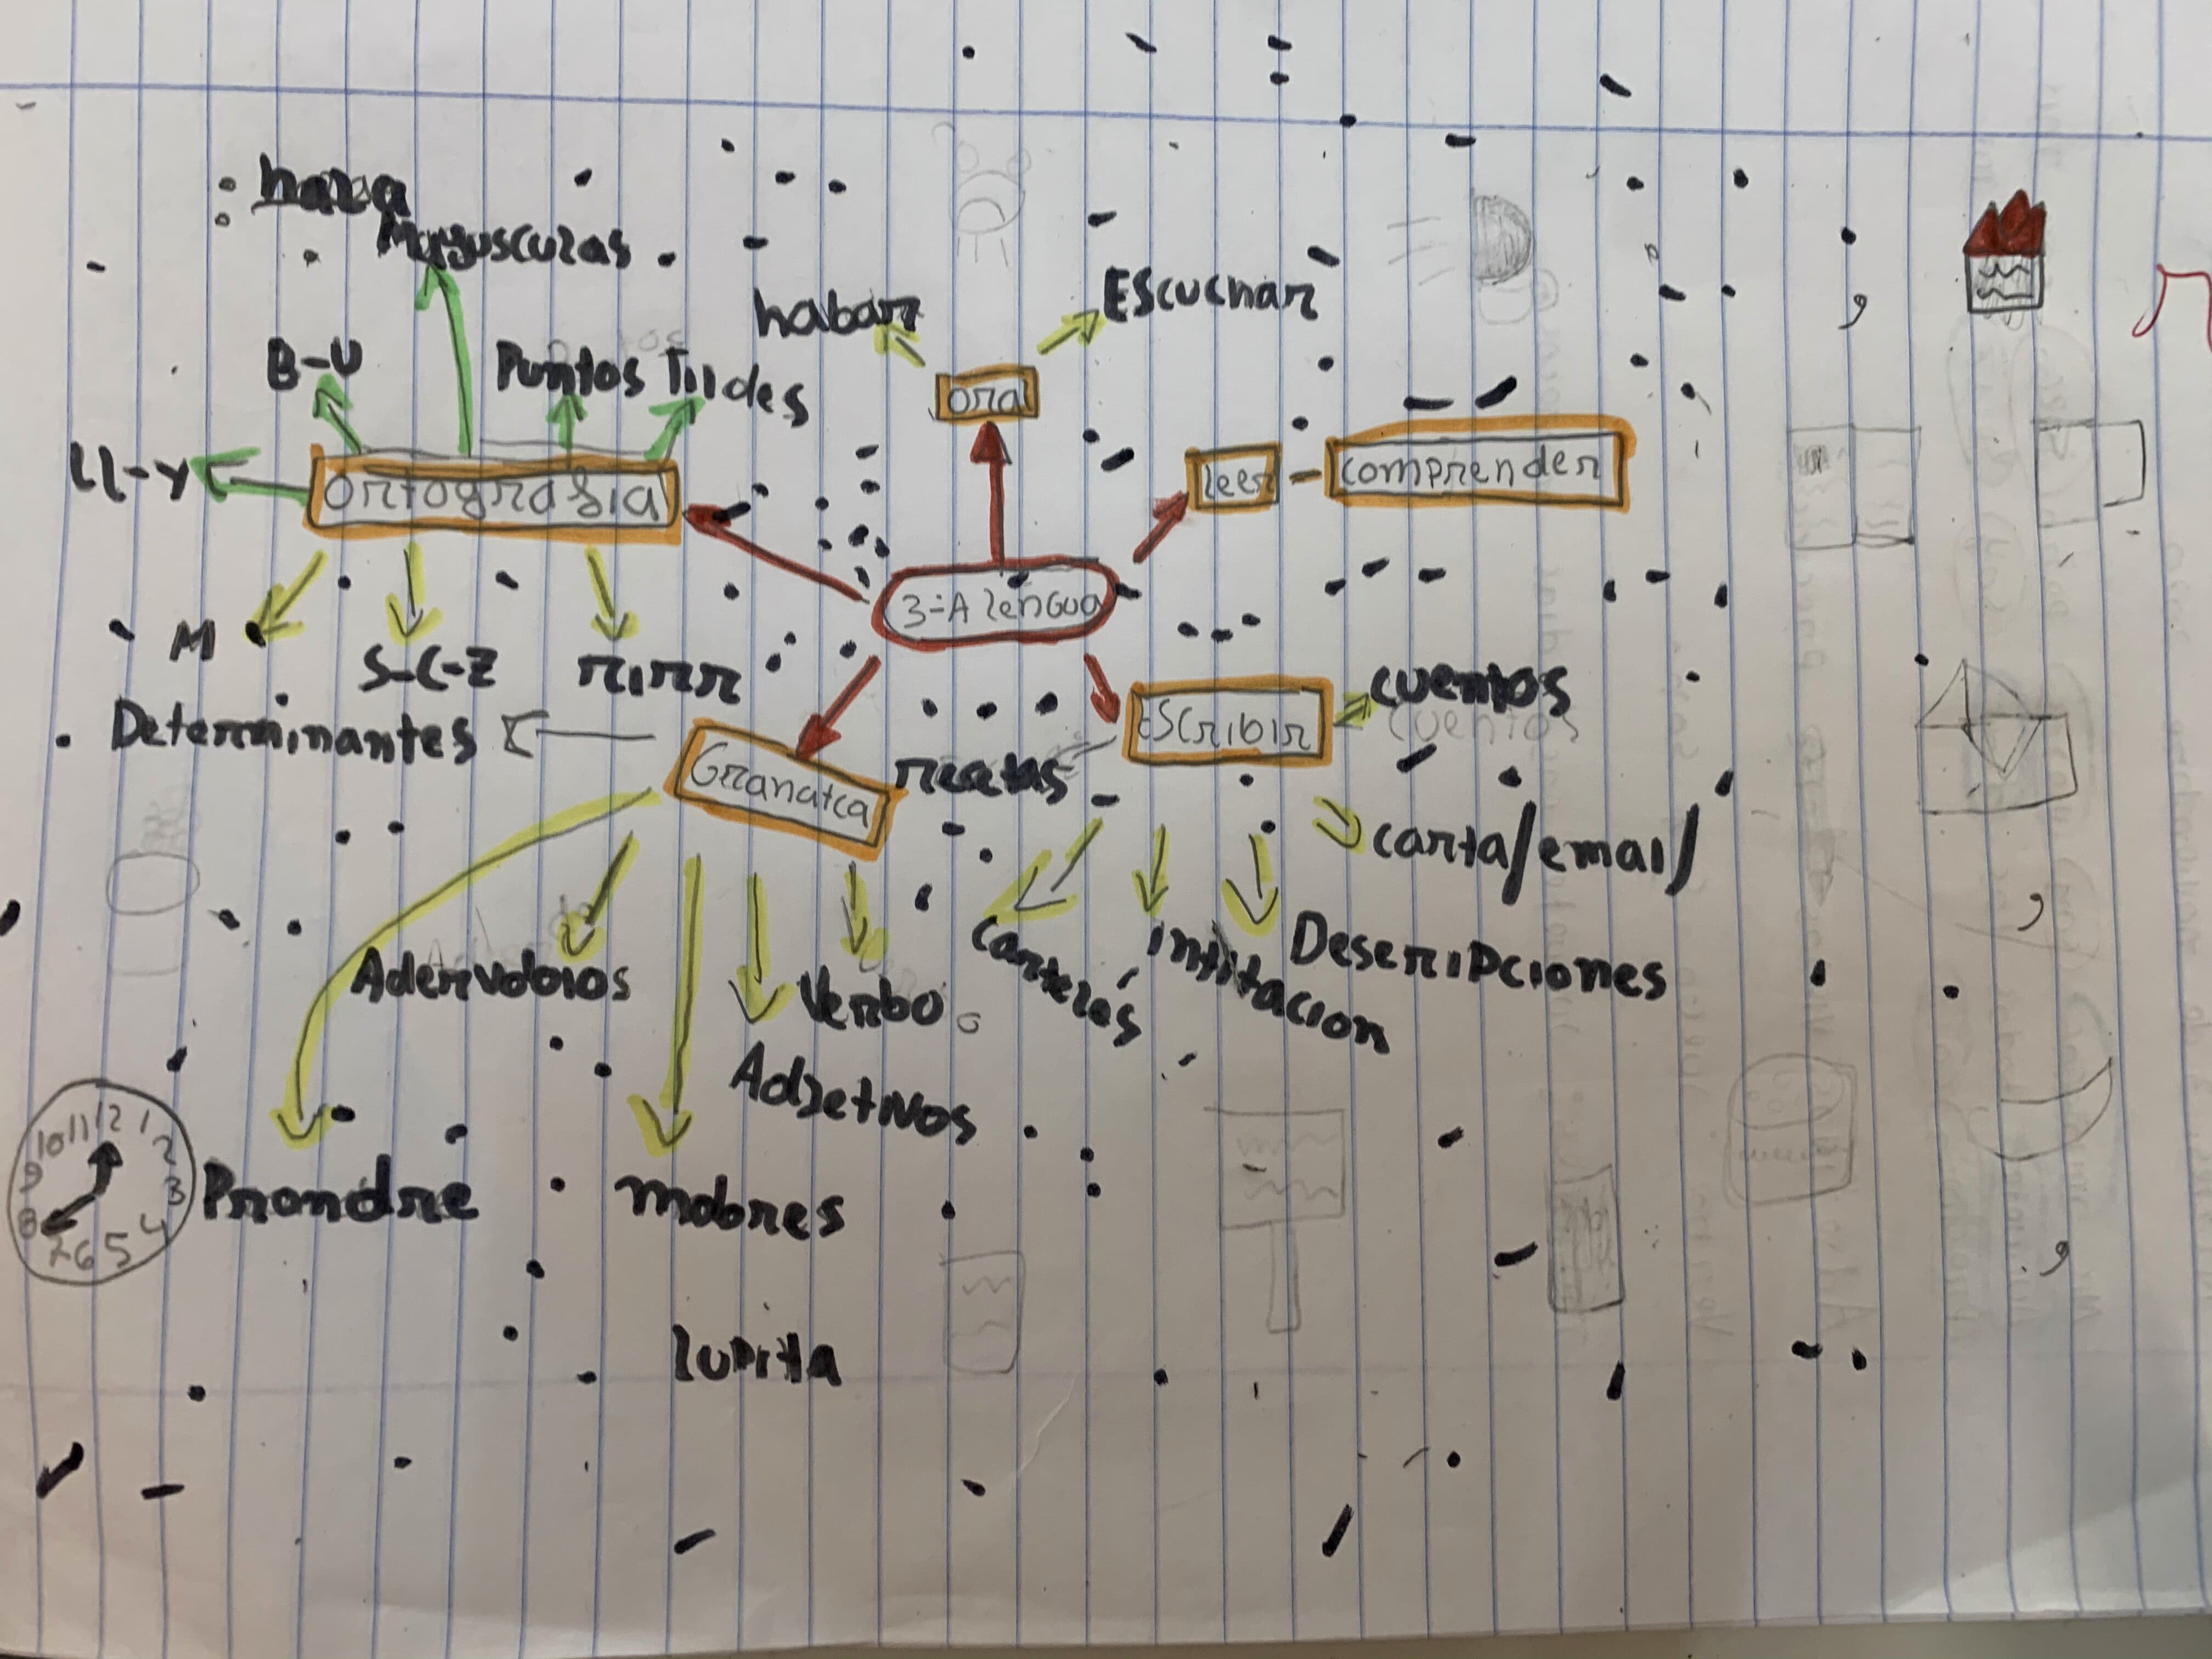 Mayusculas
habar
Escuchar
B-V
Puntos
Tildes
oral
ll-y
ortografia
leer - comprender
3-A lengua
M
S-C-Z
r,rr
Determinantes
Granatca
escribir
cuentos
cuentos
carta/email/
Adervobios
Verbo
Adjetivos
carteles
Descripciones
12 1 2 3 4 5 6 7 8 9 10 11
Prondre
mobres
lupita